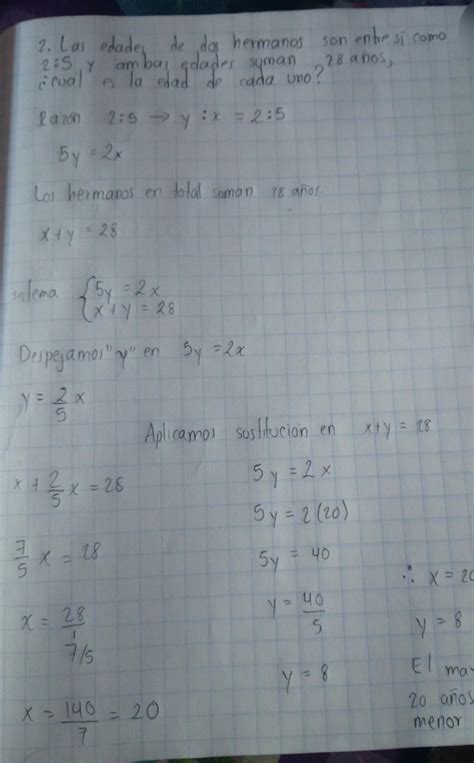 2. Las edades de dos hermanos son entre si como
2:5 y ambas edades suman 28 años,
¿cual es la edad de cada uno?
Razon 2:5 → y : x = 2:5
5y = 2x
Los hermanos en total suman 28 años.
x + y = 28
sistema { 5y = 2x
x + y = 28
Despejamos "y" en 5y = 2x
y = 2/5 x
Aplicamos sostitucion en x+y = 28
x + 2/5 x = 28
7/5 x = 28
x = 28/1 / 7/5
x = 140/7 = 20
5y = 2x
5y = 2(20)
5y = 40
y = 40/5
y = 8
∴ x = 20
y = 8
El ma
20 años
menor